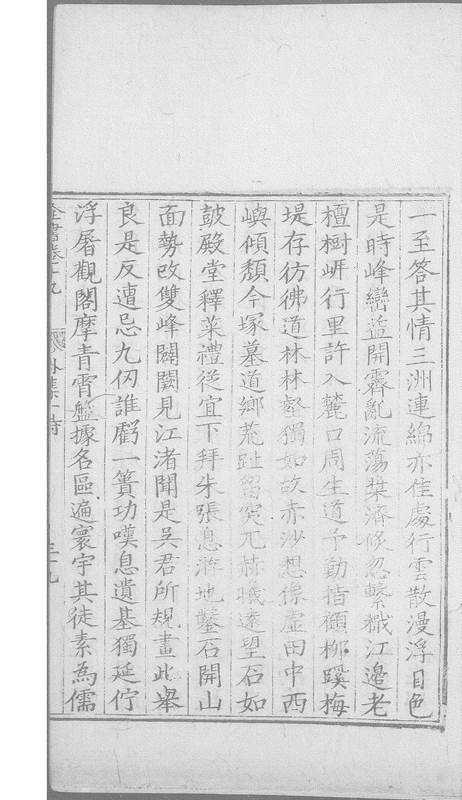 一至答其情三洲連綿亦佳處行雲散漫浮日色
是時峰巒益開霽亂流蕩槳濟倏忽繫檝江邊老
檀樹岍行里許入麓口周生道予勤指顧柳蹊梅
堤存彷彿道林林壑獨如故赤沙想像虛田中西
嶼傾頹今塚墓道鄉荒趾留突兀赫曦遠望石如
皷殿堂釋菜禮從宜下拜朱張息游地鑿石開山
面勢改雙峰闢闕見江渚聞是吳君所規畫此舉
良是反遭忌九仞誰虧一簣功嘆息遺基獨延佇
浮屠觀閣摩青霄盤據名區遍寰宇其徒素為儒
全書卷十九 外集 詩 三九